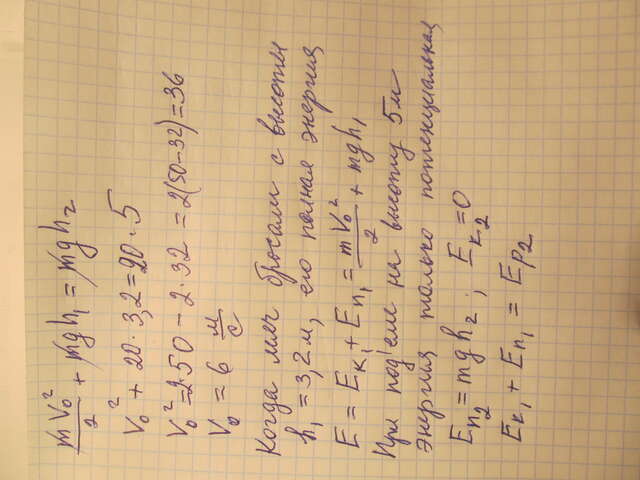 mV₀²/2 + mgh₁ = mgh₂
V₀² + 20·3,2 = 20·5
V₀² = 2·50 - 2·32 = 2(50-32) = 36
V₀ = 6 м/с
Когда мяч бросали с высоты
h₁ = 3,2 м, его полная энергия
E = Eк₁ + Eп₁ = mV₀²/2 + mgh₁
При под'еме на высоту 5м
энергия только потенциальная
Eп₂ = mgh₂; Eк₂ = 0
Eк₁ + Eп₁ = Eр₂